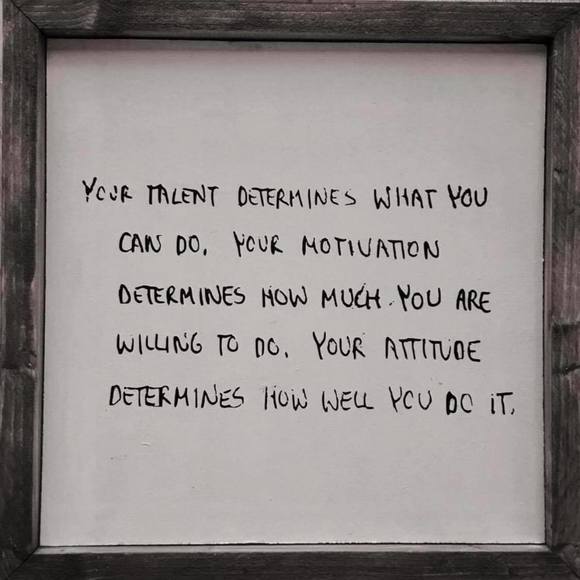 YOUR TALENT DETERMINES WHAT YOU
CAN DO. YOUR MOTIVATION
DETERMINES HOW MUCH YOU ARE
WILLING TO DO. YOUR ATTITUDE
DETERMINES HOW WELL YOU DO IT.